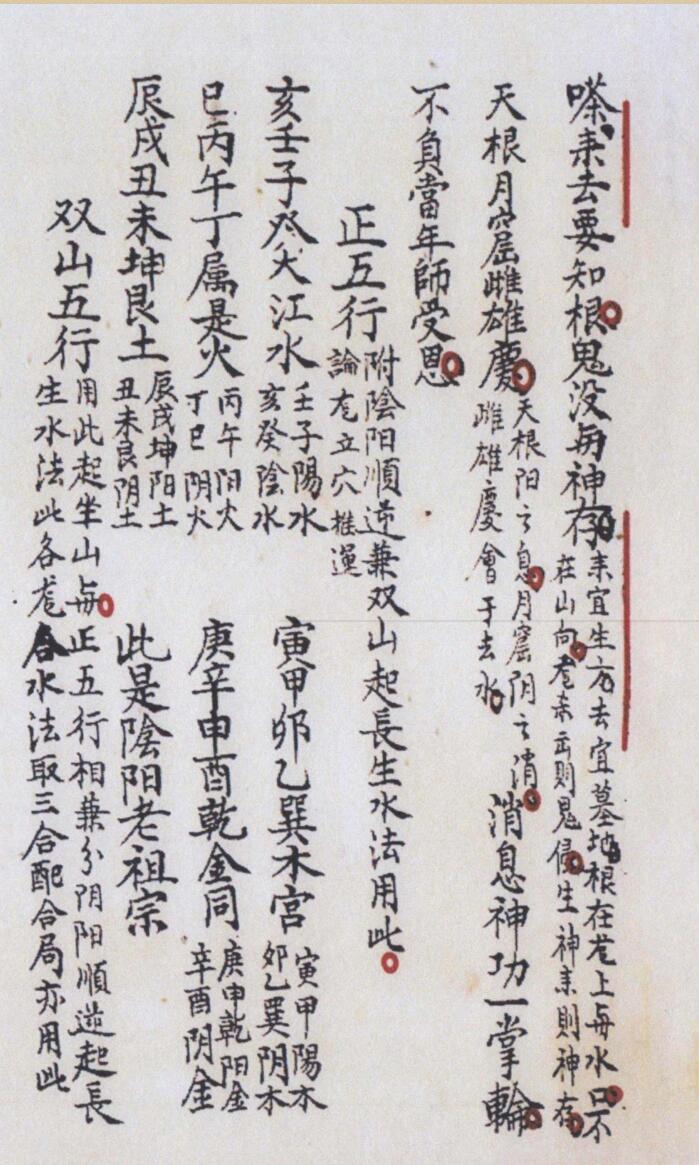 嗏来去要知根鬼没毋神存来宜生方去宜墓地根在龙上毋水口不
在山向老亲高则鬼侵生神来则神存
天根月窟雌雄慶天根阳之息月窟阴之消消息神功一掌輪
雌雄慶會于去水
不負當年師受恩
正五行附陰阳順逆兼双山起長生水法用此
論龙立穴推運
亥壬子癸大江水壬子陽水寅甲卯乙巽木宮寅甲陽木
亥癸陰水卯乙巽阴木
巳丙午丁属是火丙午阳火庚辛申酉乾金同庚申乾阳金
丁巳阴火辛酉阴金
辰戌丑未坤艮土辰戌坤阳土此是陰阳老祖宗
丑未艮阴土
双山五行用此起坐山毋正五行相兼分阴阳順逆起長
生水法此各龙合水法取三合配合局亦用此